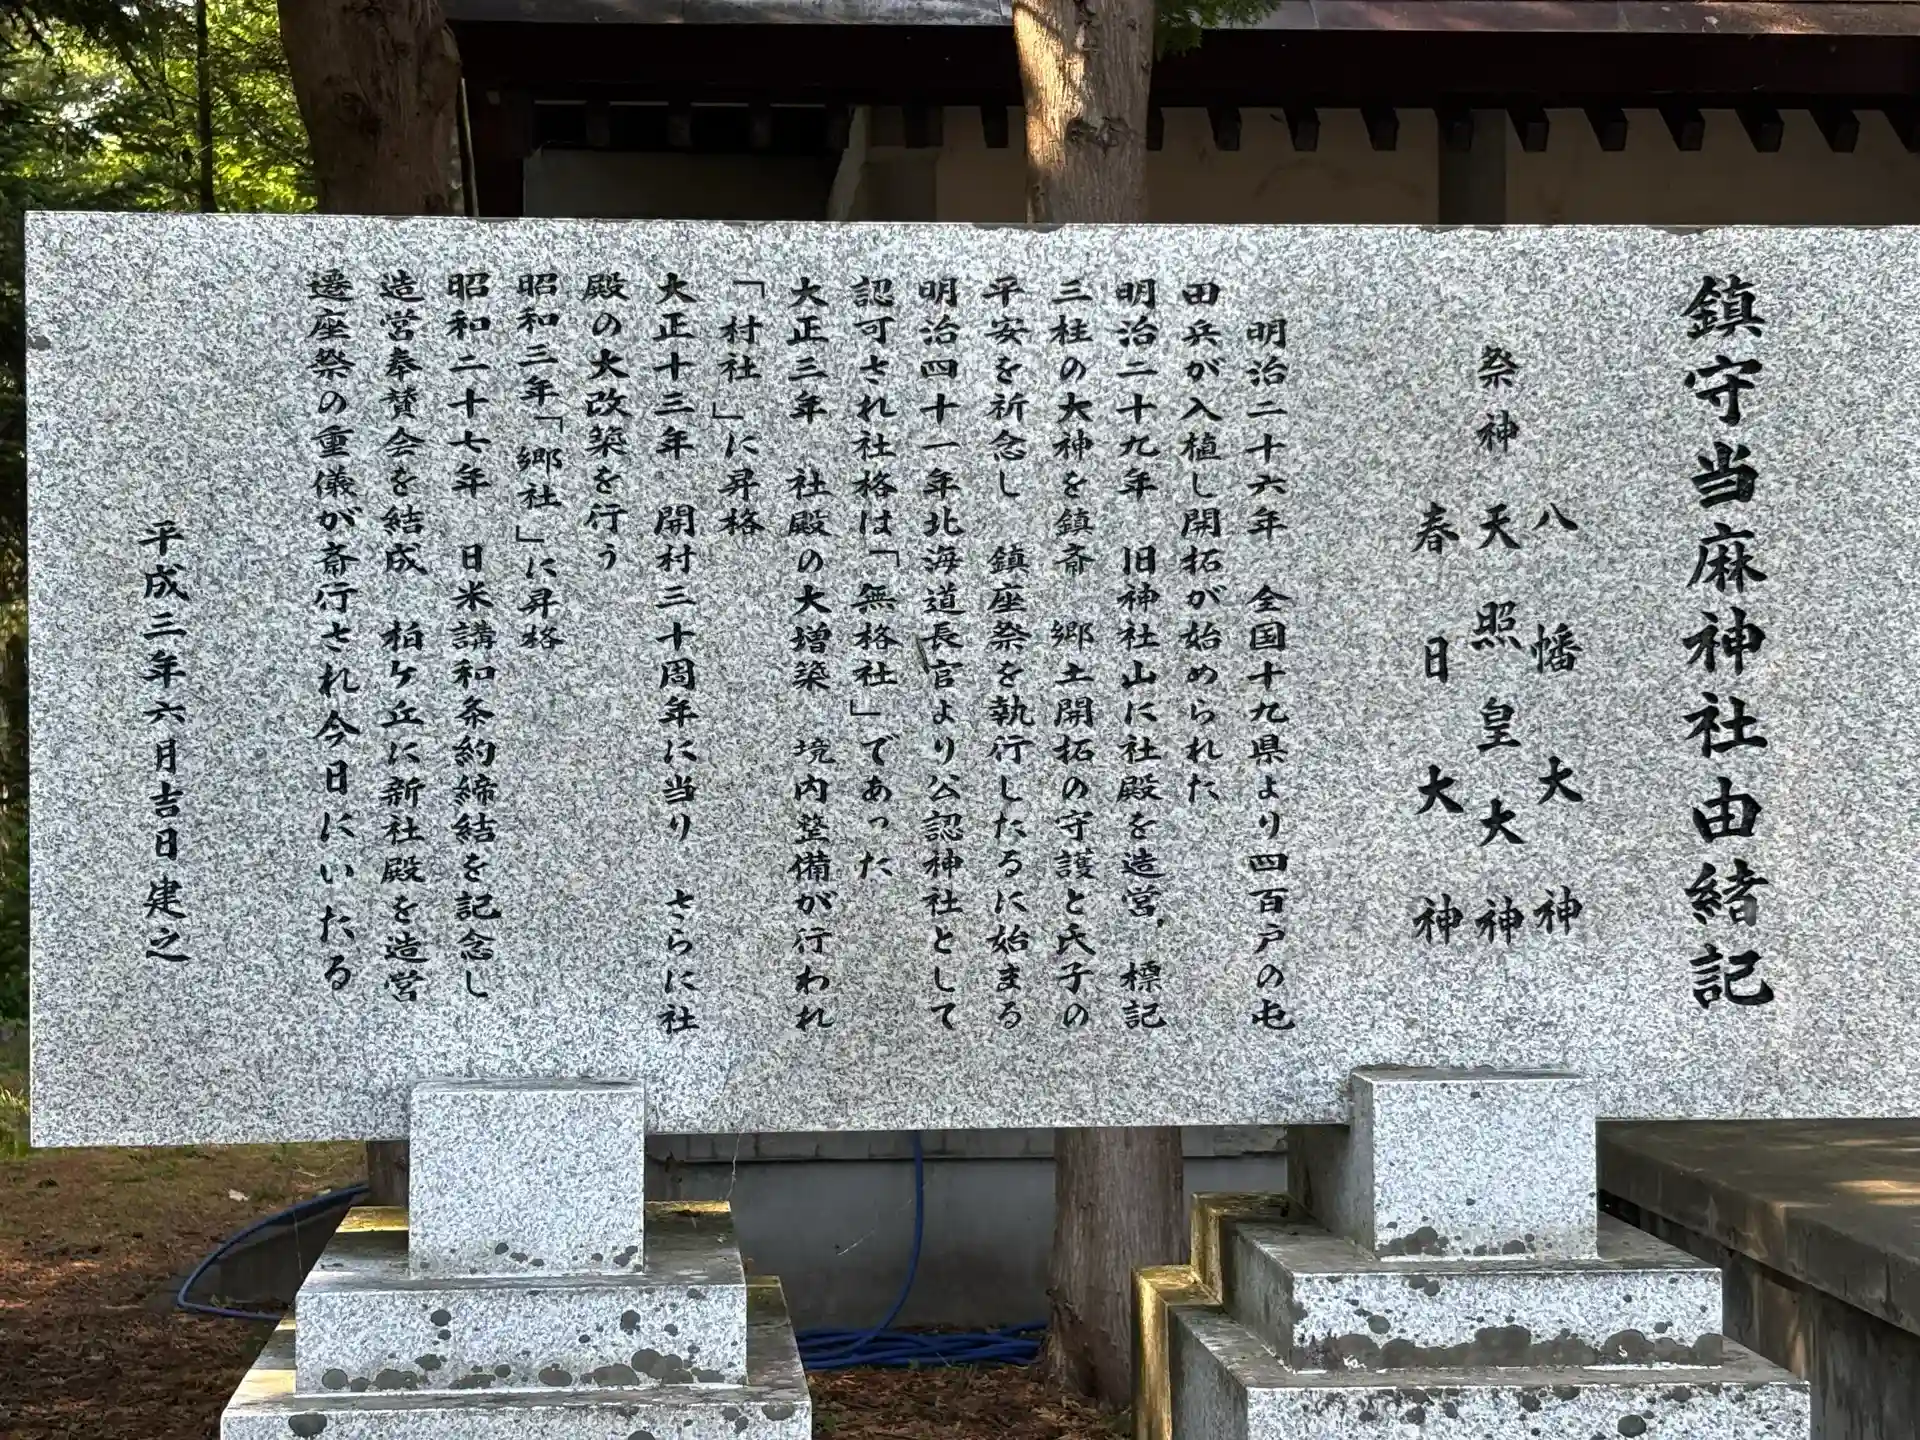 鎮守当麻神社由緒記
八幡大神
祭神 天照皇大神
春日大神
明治二十六年 全国十九県より四百戸の屯
田兵が入植し開拓が始められた
明治二十九年 旧神社山に社殿を造営，標記
三柱の大神を鎮斎 郷土開拓の守護と氏子の
平安を祈念し 鎮座祭を執行したるに始まる
明治四十一年北海道長官より公認神社として
認可され社格は「無格社」であった
大正三年 社殿の大増築 境内整備が行われ
「村社」に昇格
大正十三年 開村三十周年に当り さらに社
殿の大改築を行う
昭和三年「郷社」に昇格
昭和二十七年 日米講和条約締結を記念し
造営奉賛会を結成 柏ケ丘に新社殿を造営
遷座祭の重儀が斎行され今日にいたる
平成三年六月吉日建之